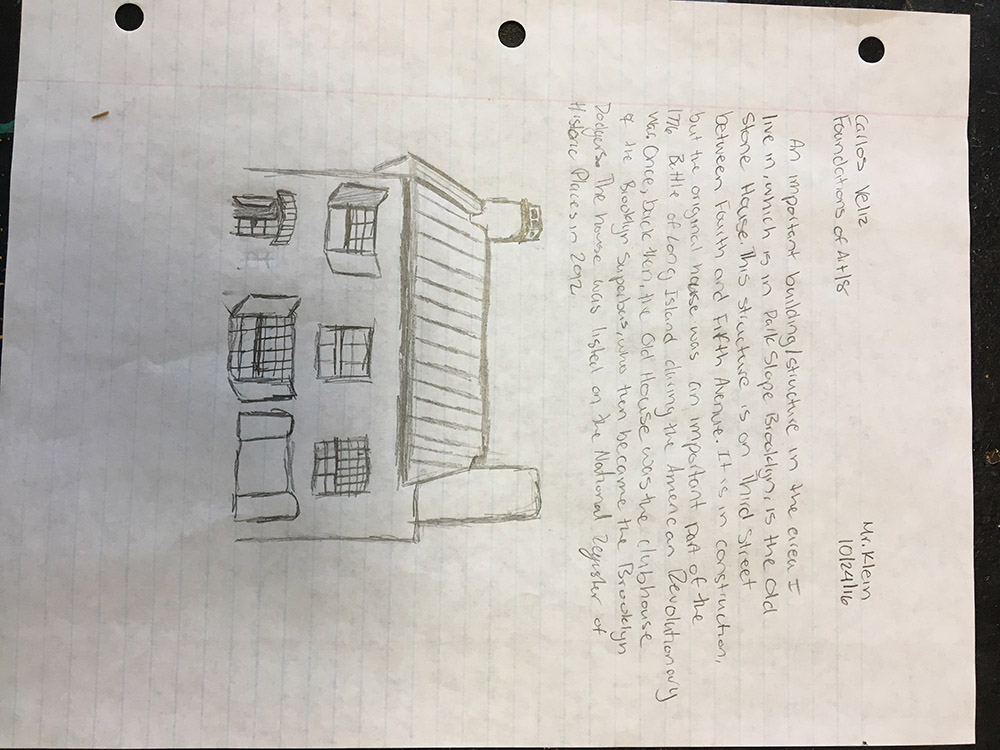 Carlos Veliz
Mr. Klein
Foundations of Art/8
10/24/16
An important building/structure in the area I
live in, which is in Park Slope Brooklyn, is the Old
Stone House. This structure is on Third Street
between Fourth and Fifth Avenue. It is in construction,
but the original house was an important part of the
1776 Battle of Long Island during the American Revolutionary
War. Once, back then, the Old House was the clubhouse
of the Brooklyn Superbas, who then became the Brooklyn
Dodgers. The house was listed on the National Register of
Historic Places in 2012